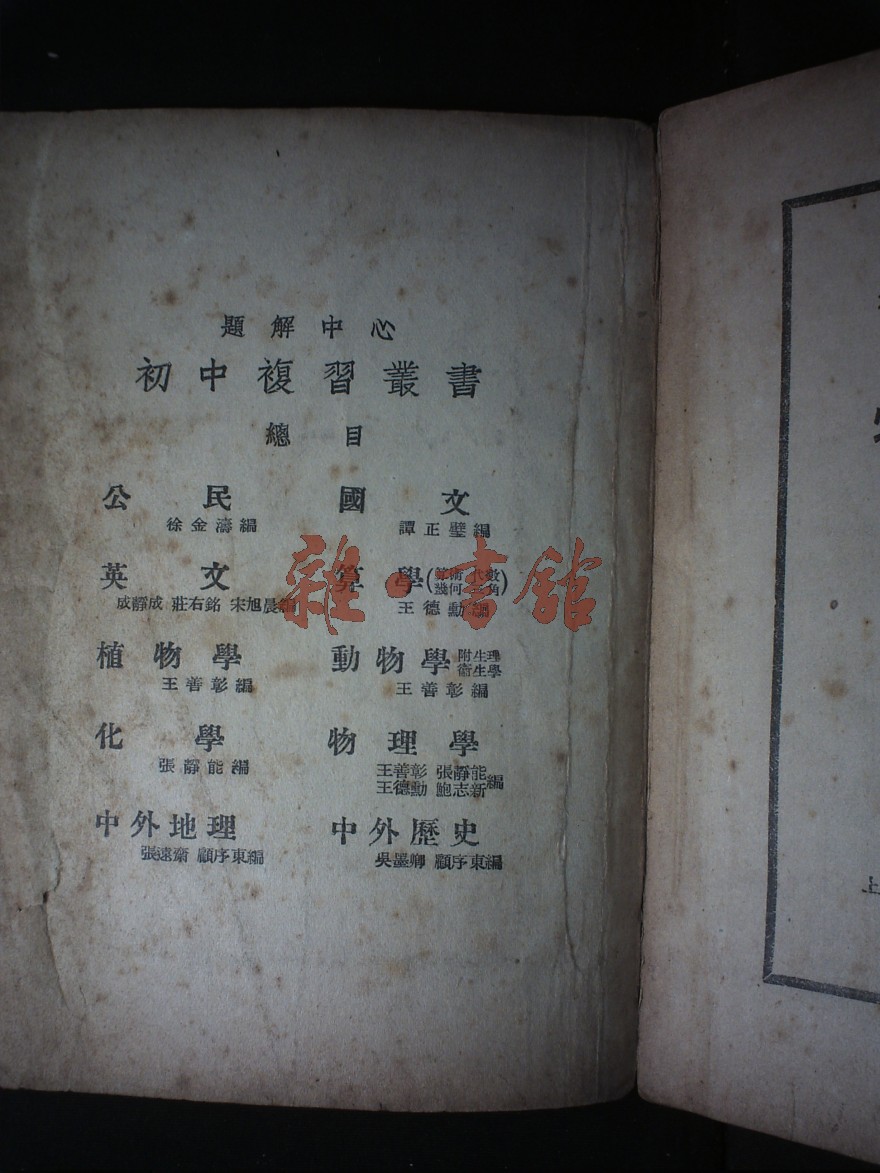 題解中心
初中複習叢書
總目
公民 國文
徐金濤編 譚正璧編
英文 算學(算術 代數 幾何 三角)
成靜成 莊右銘 宋旭晨編 王德勳編
植物學 動物學 附生理衛生學
王善彰編 王善彰編
化學 物理學
張靜能編 王善彰 張靜能 王德勳 鮑志新 編
中外地理 中外歷史
張遠齋 顧序東編 吳墨卿 顧序東編
雜·書館